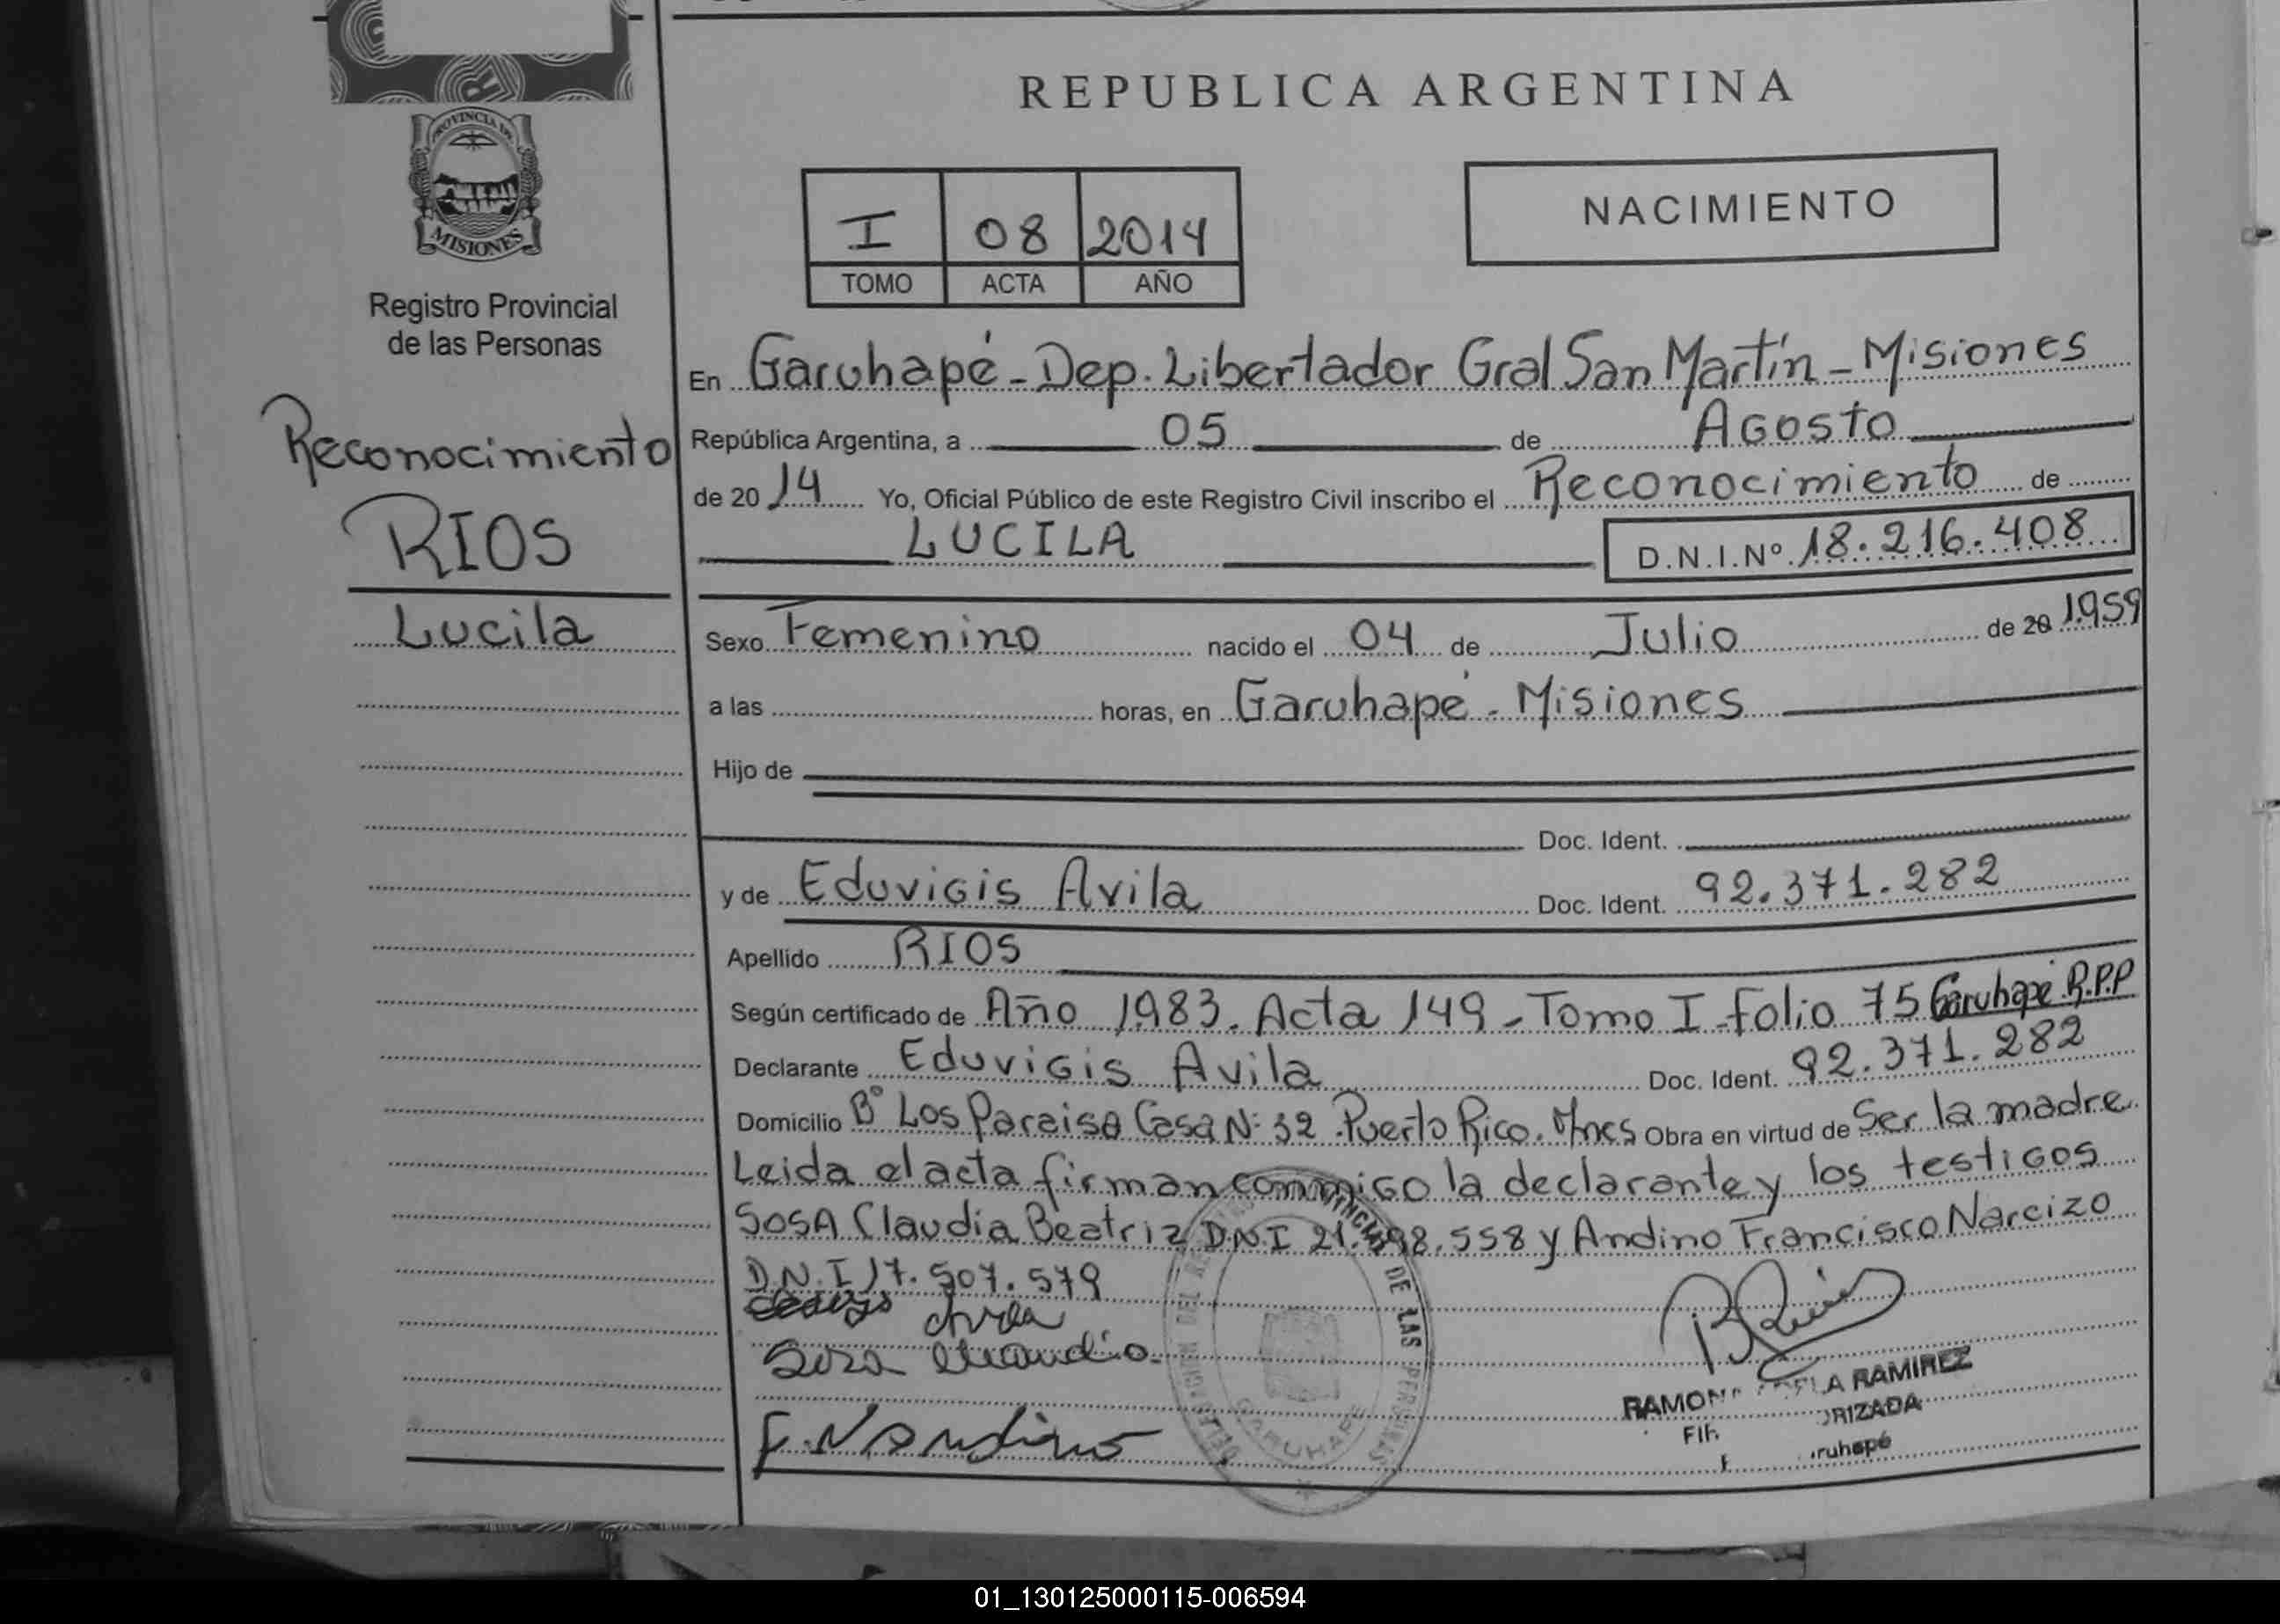 REPUBLICA ARGENTINA
PROVINCIA DE
MISIONES
Registro Provincial
de las Personas
I 08 2014
TOMO ACTA AÑO
NACIMIENTO
Reconocimiento
RIOS
Lucila
En Garuhapé - Dep. Libertador Gral San Martín - Misiones
República Argentina, a 05 de Agosto
de 20 14 Yo, Oficial Público de este Registro Civil inscribo el Reconocimiento de
LUCILA D.N.I.Nº 18.216.408
Sexo Femenino nacido el 04 de Julio de 20 1959
a las horas, en Garuhapé - Misiones
Hijo de
Doc. Ident.
y de Eduvigis Avila Doc. Ident. 92.371.282
Apellido RIOS
Según certificado de Año 1983. Acta 149 - Tomo I - Folio 75 Garuhapé R.P.P
Declarante Eduvigis Avila Doc. Ident. 92.371.282
Domicilio Bº Los Paraiso Casa Nº 32 Puerto Rico. Mnes Obra en virtud de Ser la madre
Leida el acta firman conmigo la declarante y los testigos
SOSA Claudia Beatriz D.N.I 21. 98.558 y Andino Francisco Narcizo
D.N.I 17.507.579
Sosa Claudia
F. N Andino
DELEGACION DEL PROVINCIAL DE LAS PERSONAS
GARUHAPE
RAMONA LA RAMIREZ
RIZADA
ruhapé
01_130125000115-006594